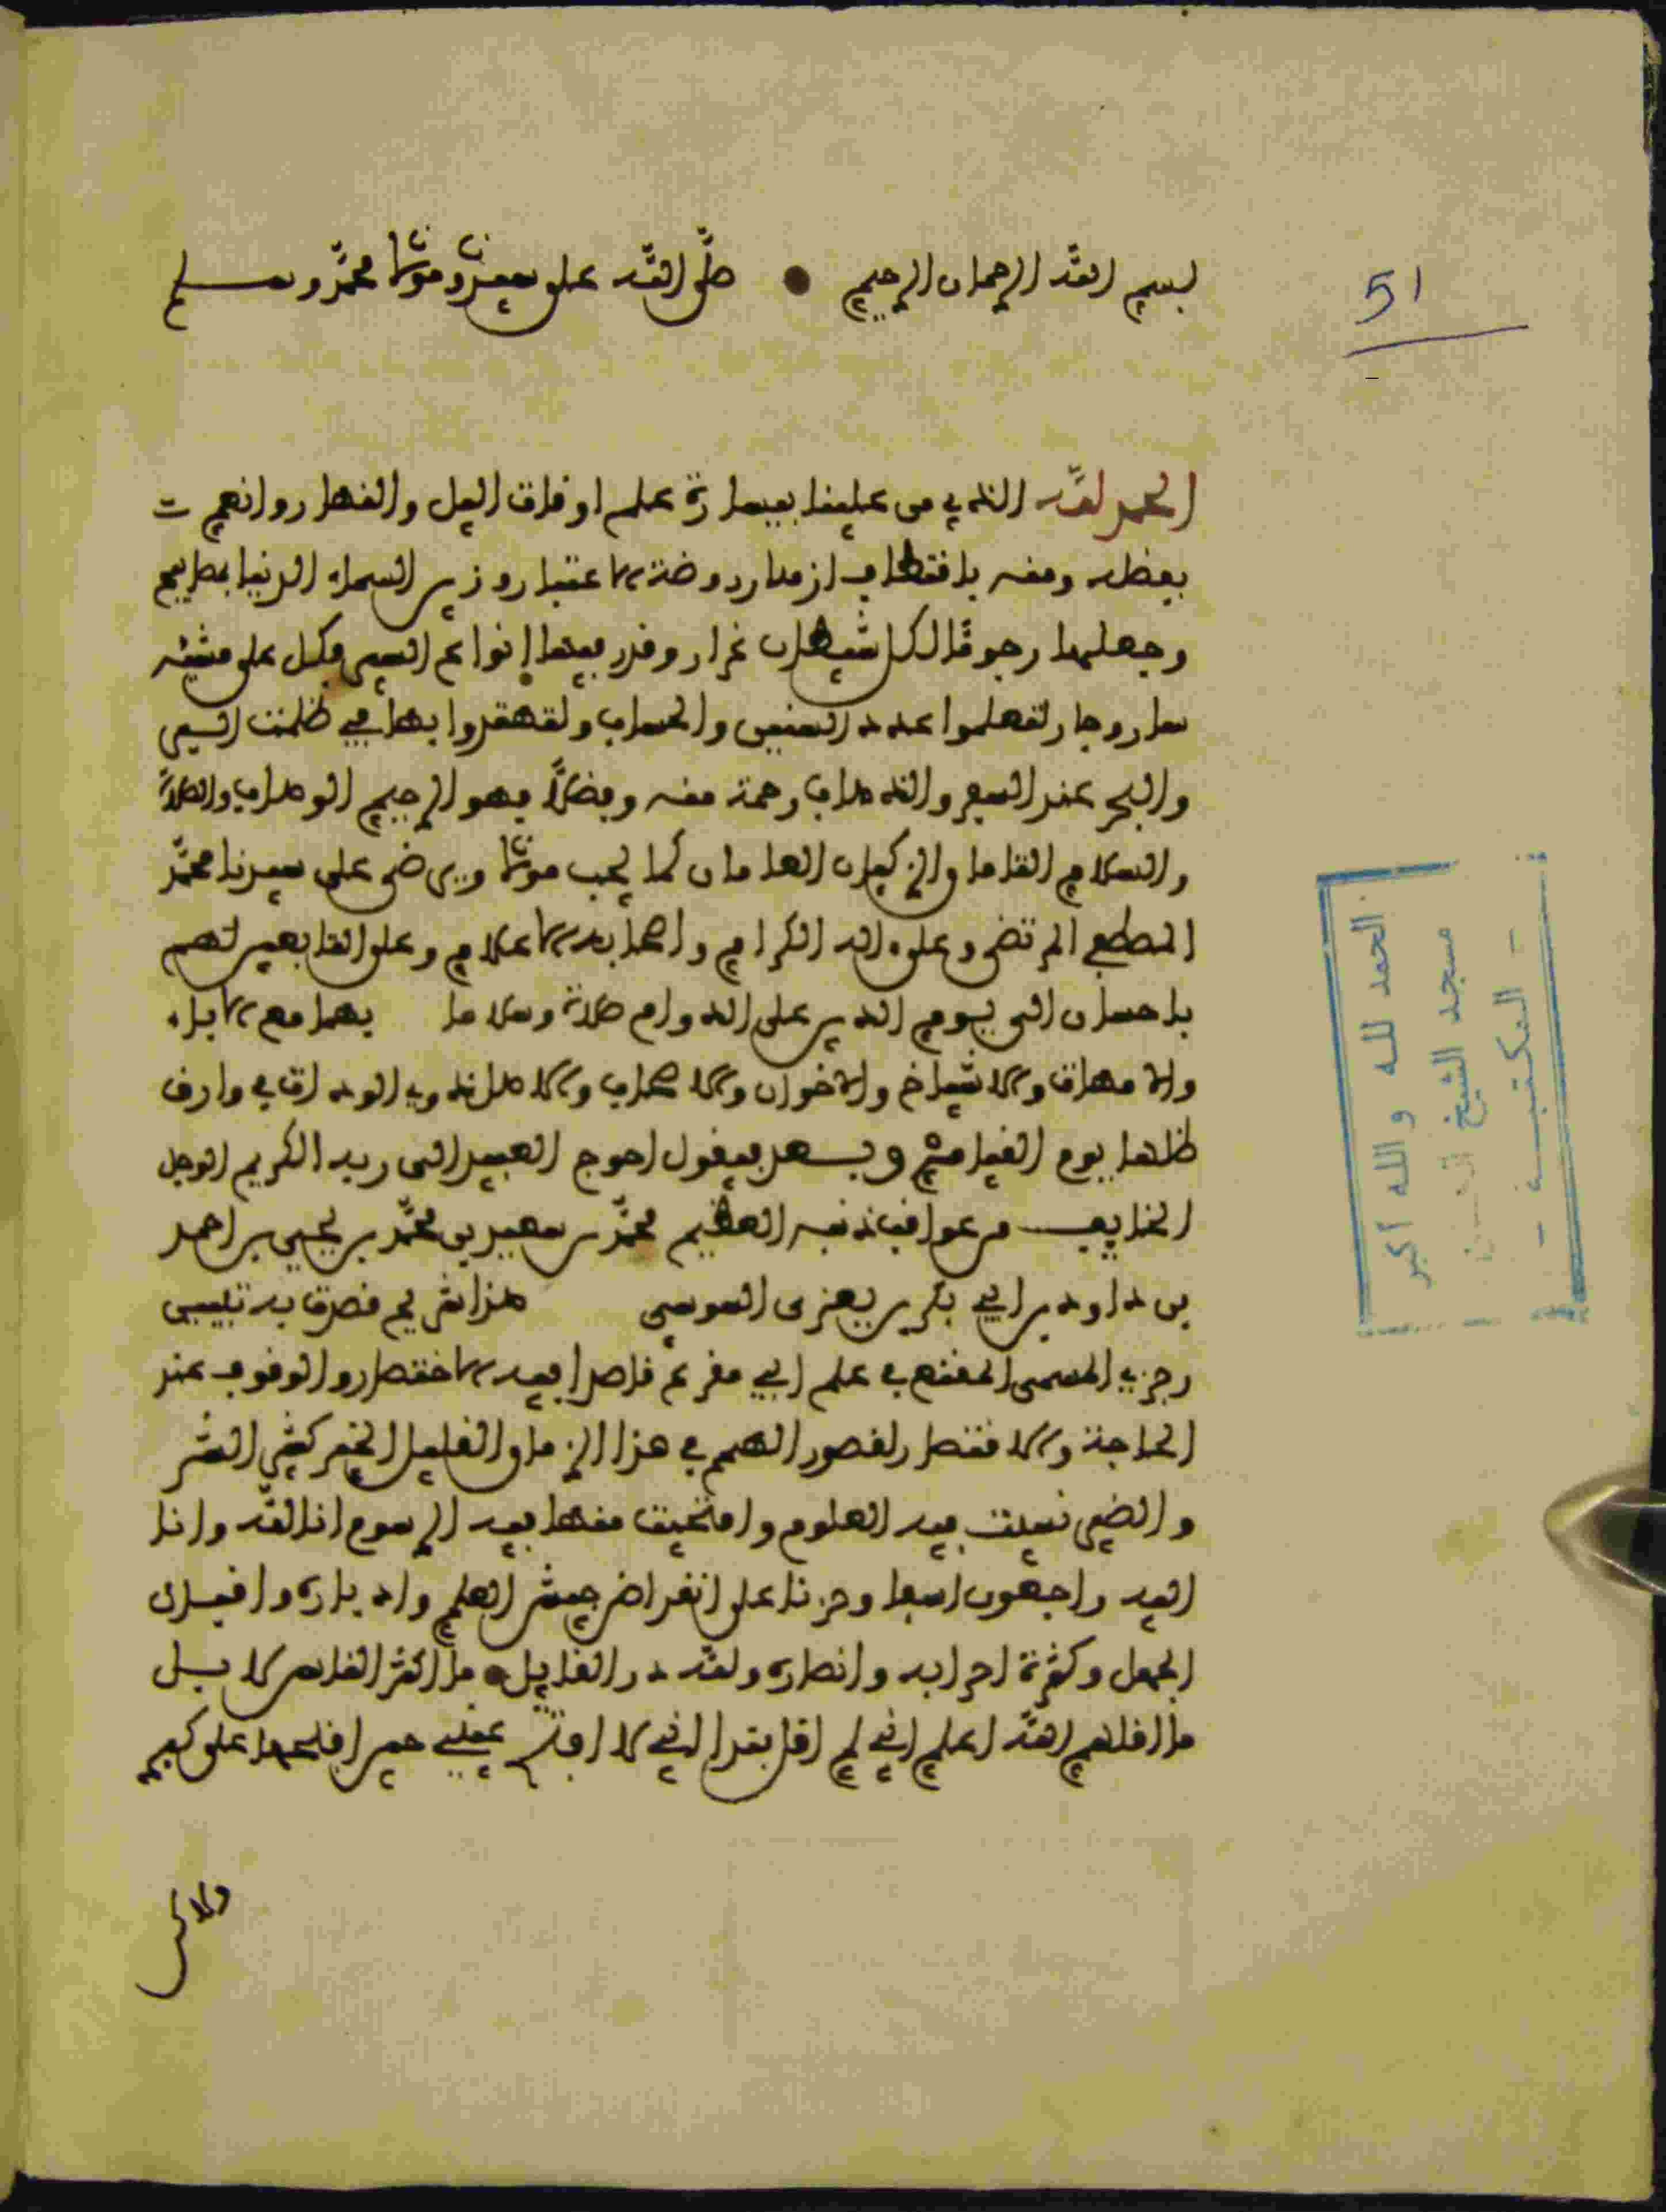 51
بسم الله الرحمان الرحيم • صلى الله على سيدنا ومولانا محمد وسلم
الحمد لله الذي من علينا بعمارة علم اوقات اليل والنهار وانعم
بفضله ومنه باقتطاف ازهار روضة الاعتبار وزين السماء الدنيا بمصابيح
وجعلها رجوما لكل شيطان غرار وقدر فيها انواع السير فكل على مشيئه
سار وجار لتعلموا عدد السنين والحساب ولتهتدوا بها في ظلمت السير
والبحر عند السير والذهاب رحمة منه وفضلا فهو الرحيم الوهاب والصلاة
والسلام التاما والزكيان العامان كما يحب مولانا ويرضى على سيدنا محمد
المصطفى المرتضى وعلى ءاله الكرام واصحابه الاعلام وعلى التابعين لهم
باحسان الى يوم الدين على الدوام صلاة وسلاما يعمان مع الاباء
والامهات والاشياخ والاخوان والاصحاب والاهل وذوي الوداد في وارف
ظلها يوم القيامة وبعد فيقول احوج العبيد الى ربه الكريم الوجل
الخايف من عواقب ذنبه العظيم محمد بن سعيد بن محمد بن يحيى بن احمد
بن داود بن ابي بكر بن يعزى السوسي هذا شرح قصدت به تبيين
رجزي المسمى المقنع في علم ابي مقرع قاصدا فيه الاختصار والوقوف عند
الحاجة والاقتصار لقصور الهمم في هذا الزمان القليل الخير كثير الشر
والضير نسيت فيه العلوم وامتحيت منها فيه الرسوم انا لله وانا
اليه راجعون اسفا وحزنا على انقراض جيش العلم وادباره واقبال
الجهل وكثرة احزابه وانصاره ولله در القايل • ما اكثر الناس لا بل
ما اقلهم الله اعلم اني لم اقل فندا اني لا افتح عيني حين افتحها على كثير
ولاكن
الحمد لله و الله اكبر
مسجد الشيخ
- المكتبة -